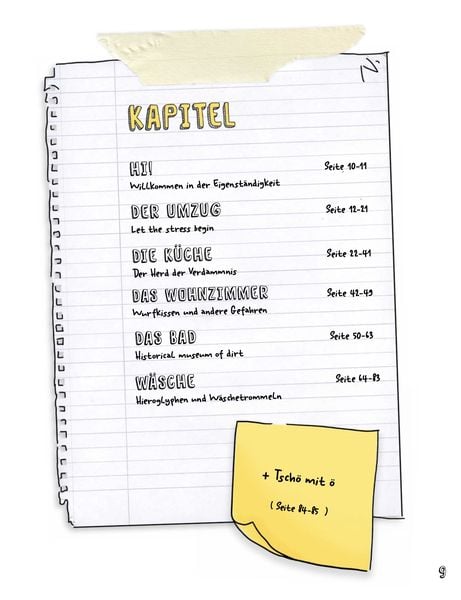 KAPITEL
HI! Seite 10-11
Willkommen in der Eigenständigkeit
DER UMZUG Seite 12-21
Let the stress begin
DIE KÜCHE Seite 22-41
Der Herd der Verdammnis
DAS WOHNZIMMER Seite 42-49
Wurfkissen und andere Gefahren
DAS BAD Seite 50-63
Historical museum of dirt
WÄSCHE Seite 64-83
Hieroglyphen und Wäschetrommeln
+ Tschö mit ö
( Seite 84-85 )
9